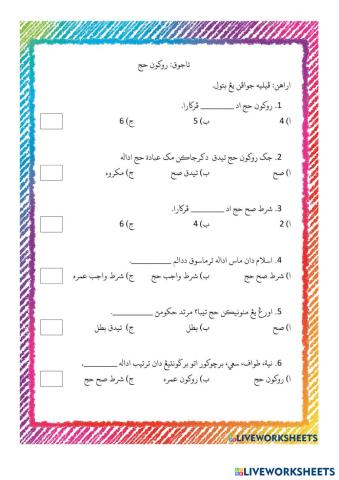 تاجوق: روكون حج
اراهن: ڤيليه جواڤن يڠ بتول.
1. روكون حج اد ________ ڤركارا.
ا) 4 ب) 5 ج) 6
2. جك روكون حج تيدق دكرجاكن مک عبادة حج اداله
ا) صح ب) تيدق صح ج) مكروه
3. شرط صح حج اد ________ ڤركارا.
ا) 2 ب) 4 ج) 6
4. اسلام دان ماس اداله ترماسوق ددالم __________.
ا) شرط صح حج ب) شرط واجب حج ج) شرط واجب عمره
5. اورڠ يڠ منونيكن حج تيبا٢ مرتد حكومن __________.
ا) صح ب) بطل ج) تيدق بطل
6. نية، طواف، سعي، برچوكور اتو برݢونتيڠ دان ترتيب اداله ________.
ا) روكون حج ب) روكون عمره ج) شرط صح حج
LIVEWORKSHEETS
LIVEWORKSHEETS